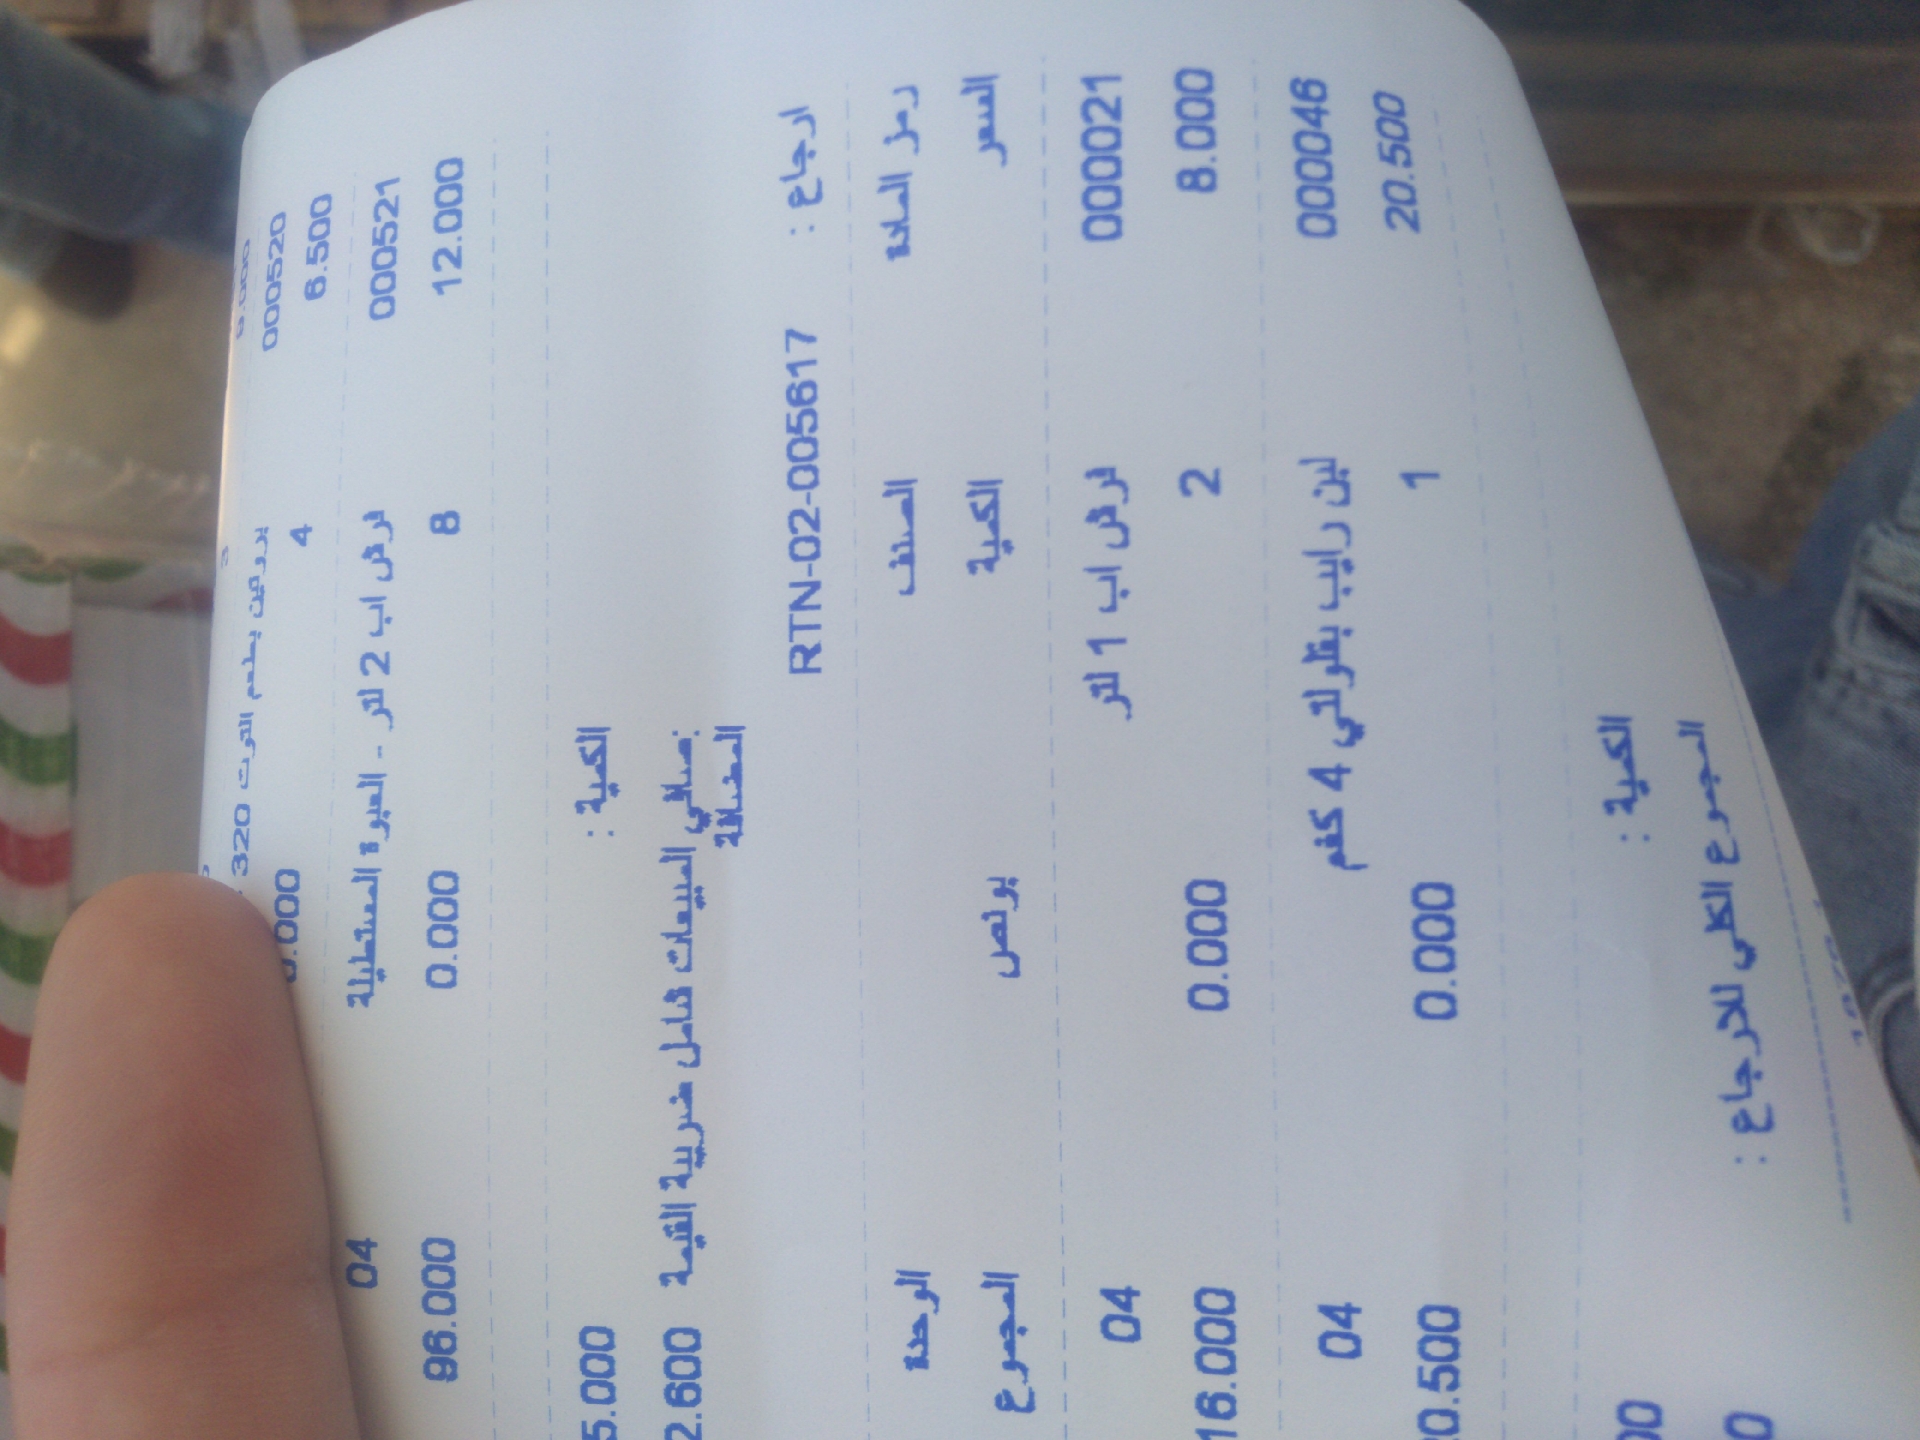 000520 بروتين بطعم التوت 320
6.500 4 0.000
000521 فرش اب 2 لتر - العبوة المستطيلة 04
12.000 8 0.000 96.000
الكمية : 5.000
صافي المبيعات شامل ضريبة القيمة 2.600
المضافة :
ارجاع : RTN-02-005617
رمز المادة الصنف الوحدة
السعر الكمية بونص المجموع
000021 فرش اب 1 لتر 04
8.000 2 0.000 16.000
000046 لبن رايب بقلولتي 4 كغم 04
20.500 1 0.000 0.500
الكمية : 00
المجموع الكلي للارجاع : 0